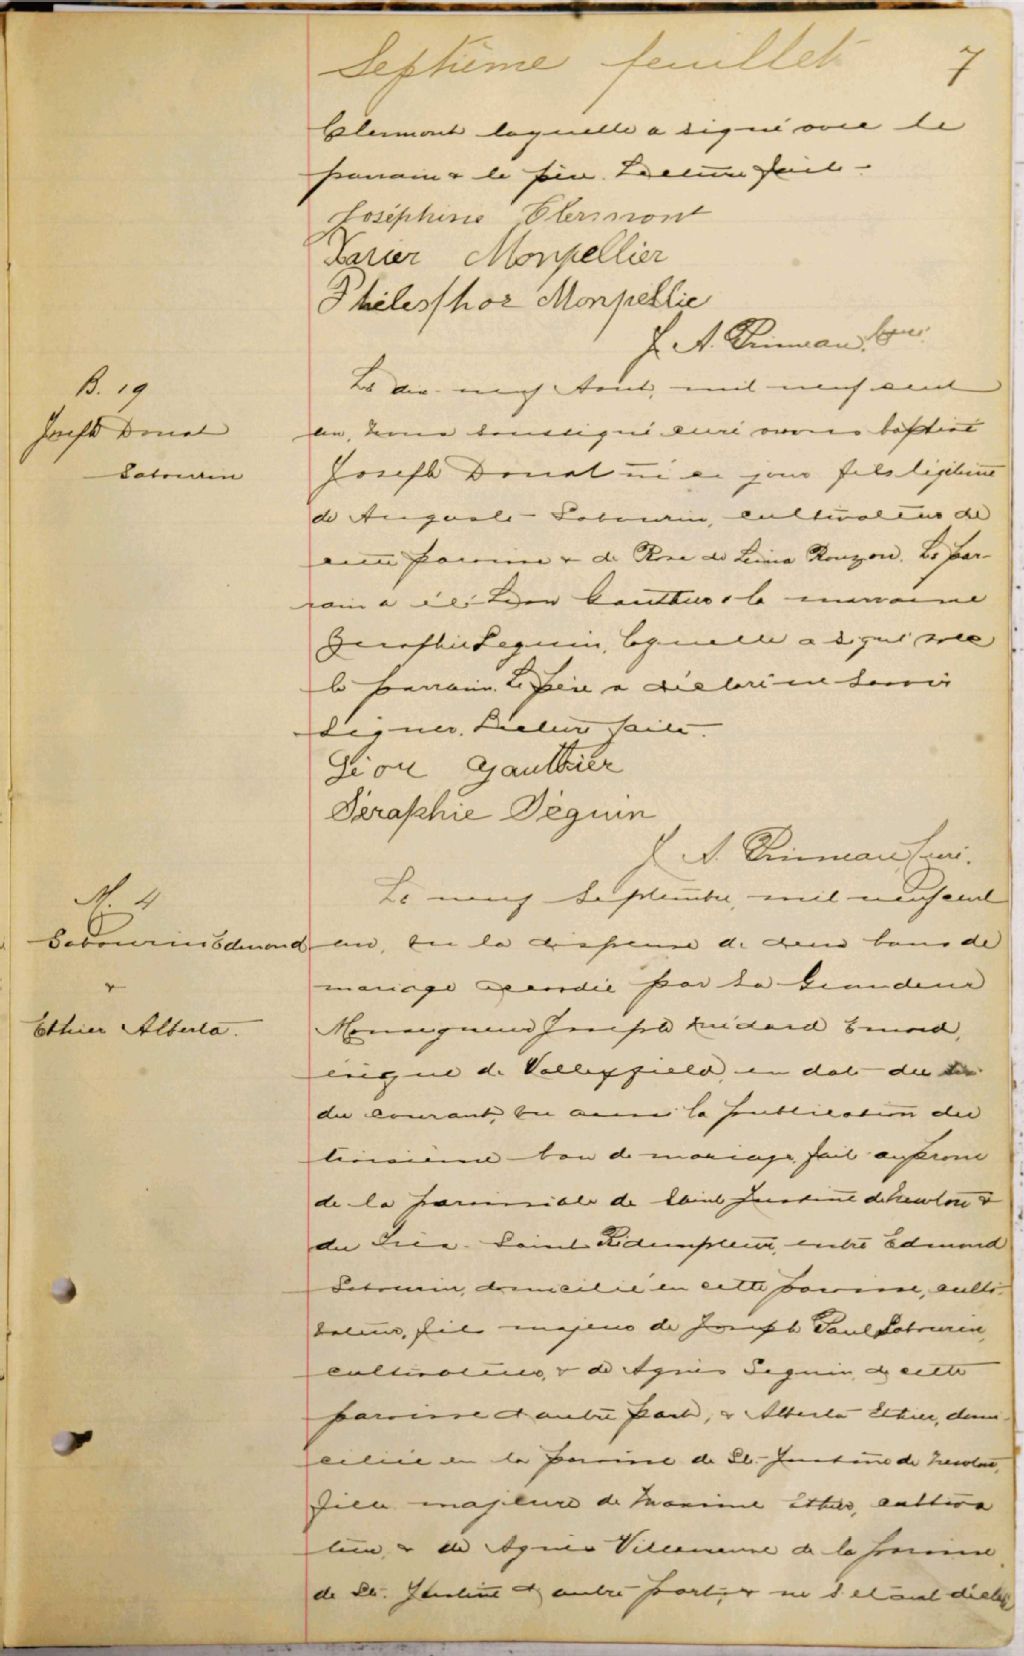 Septième feuillet 7
Clermont laquelle a signé avec le
parrain & le père. Lecture faite.
Joséphine Clermont
Xavier Monpellier
Philesphor Monpellie
J. A. Primeau, Curé.
B. 19
Joseph Donat
Sabourin
Le dix-neuf Aout, mil neuf cent
un, nous soussigné curé avons baptisé
Joseph Donat né ce jour fils légitime
de Auguste Sabourin, cultivateur de
cette paroisse & de Rose de Lima Rouzon. Le par-
rain a été Léon Gauthier & la marraine
Séraphie Seguin, laquelle a signé avec
le parrain. Le père a déclaré ne savoir
signer. Lecture faite.
Léon Gauthier
Séraphie Séguin
J. A. Primeau, Curé.
M. 4
Sabourin Edmond
&
Ethier Alberta.
Le neuf Septembre, mil neuf cent
un, vu la dispense de deux bans de
mariage accordée par Sa Grandeur
Monseigneur Joseph Médard Emard,
évêque de Valleyfield, en date du
du courant, vu aussi la publication du
troisième ban de mariage fait au prone
de la paroissiale de Saint Justine de Newton &
du Très-Saint Rédempteur, entre Edmond
Sabourin, domicilié en cette paroisse, culti-
vateur, fils majeur de Joseph Paul Sabourin,
cultivateur, & de Agnès Seguin, de cette
paroisse d'autre part, & Alberta Ethier, domi-
ciliée en la paroisse de St-Justine de Newton,
fille majeure de Maxime Ethier, cultiva
teur, & de Agnès Villeneuve de la paroisse
de St. Justine d'autre part, & ne s'étant décla